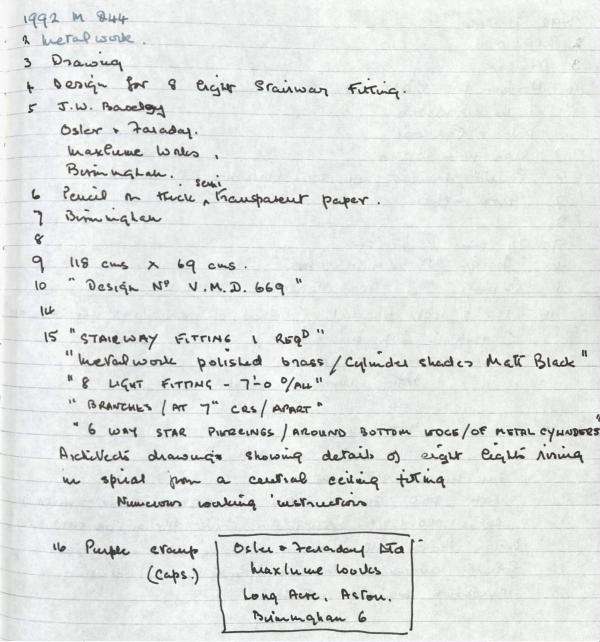 1992 M 844
2 Metalwork.
3 Drawing
4 Design for 8 light Stairway Fitting.
5 J.W.
Osler & Faraday.
Maxlume Works,
Birmingham.
6 Pencil on thick semi transparent paper.
7 Birmingham
8
9 118 cms x 69 cms.
10 "Design Nº V.M.D. 669"
14
15 "STAIRWAY FITTING 1 REQD"
"Metalwork polished brass/Cylinder shades Matt Black"
"8 LIGHT FITTING - 7'-0 O/ALL"
"BRANCHES/AT 7" CRS/APART"
"6 WAY STAR PIERCINGS/AROUND BOTTOM EDGE/OF METAL CYLINDERS"
Architects drawings showing details of eight lights rising
in spiral from a central ceiling fitting
Numerous working instructions
16 Purple stamp
(Caps.)
Osler & Faraday Ltd
Maxlume Works
Long Acre, Aston.
Birmingham 6